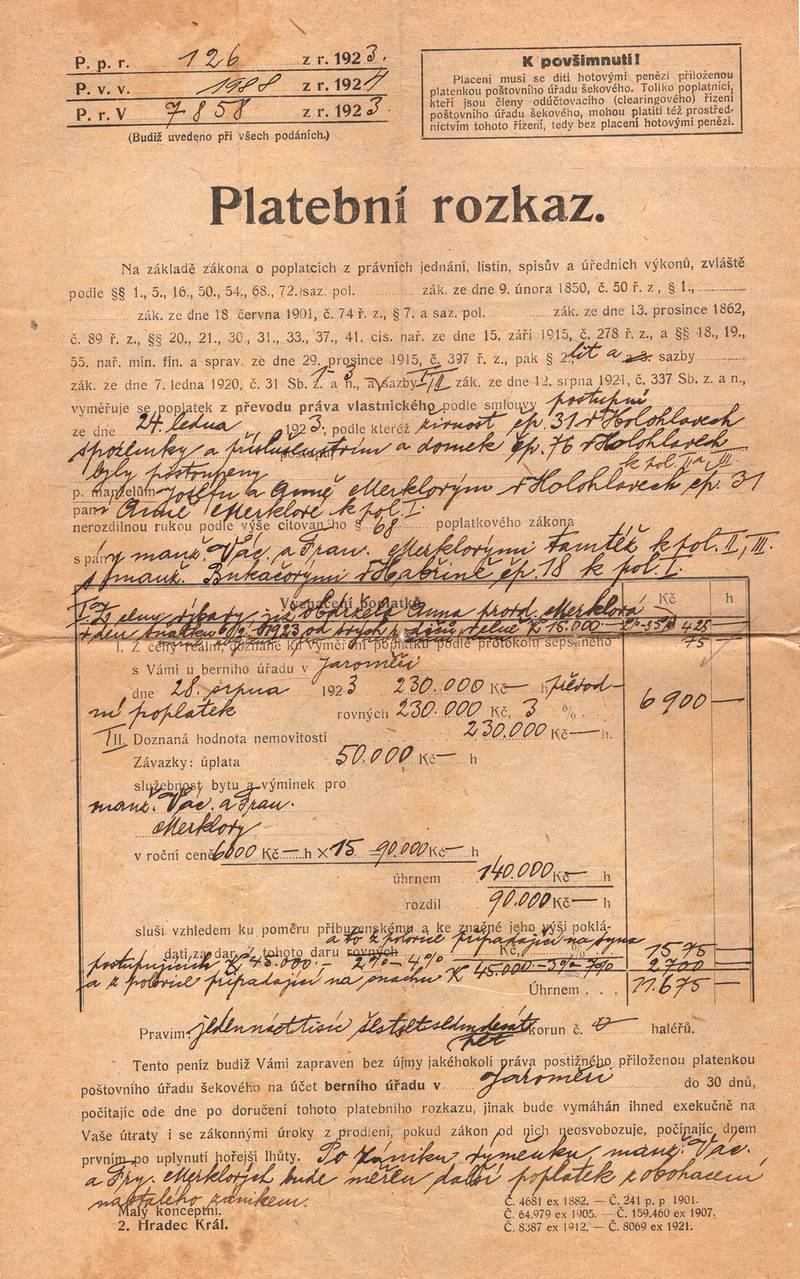 P. p. r. 126 z r. 1923.
P. v. v. 1988 z r. 1924
P. r. V 7858 z r. 1923
(Budiž uvedeno při všech podáních.)
K povšimnutí!
Placení musí se díti hotovými penězi přiloženou
platenkou poštovního úřadu šekového. Toliko poplatníci,
kteří jsou členy odúčtovacího (clearingového) řízení
poštovního úřadu šekového, mohou platiti též prostřed-
nictvím tohoto řízení, tedy bez placení hotovými penězi.
Platební rozkaz.
Na základě zákona o poplatcích z právních jednání, listin, spisův a úředních výkonů, zvláště
podle §§ 1., 5., 16., 50., 54., 68., 72./saz. pol. zák. ze dne 9. února 1850, č. 50 ř. z., § 1.,
zák. ze dne 18 června 1901, č. 74 ř. z., § 7. a saz. pol. zák. ze dne 13. prosince 1862,
č. 89 ř. z., §§ 20., 21., 30, 31., 33., 37., 41. cis. nař. ze dne 15. září 1915, č. 278 ř. z., a §§ 18., 19.,
55. nař. min. fin. a sprav. ze dne 29. prosince 1915, č. 397 ř. z., pak § 2. lit a sazby
zák. ze dne 7. ledna 1920, č. 31 Sb. z. a n., a sazby I/II zák. ze dne 12. srpna 1921, č. 337 Sb. z. a n.,
vyměřuje se poplatek z převodu práva vlastnického podle smlouvy postupní
ze dne 24. ledna 1923, podle kteréž živnost čp. 31 v Holohlavech
s pozemky a příslušenstvím a domek čp. 76 v Holohlavech
byly postoupeny k pol. II a III.
p. manželům Josefu a Anně Merklovým v Holohlavech čp. 31
paní Anně Merklové k pol. I.
nerozdílnou rukou podle výše citovaného § 68 poplatkového zákona
s pány manž. Vác. a Fran. Merklovými tamtéž k pol. II, III.
s manž. Bukačovými v Habřině čp. 18 k pol. I.
Vyznačení poplatku Kč h
Anna provd. Merklová
1923 od svých rodičů K 15.000 425
75
1. Z ceny reální, doznané ku vyměření poplatku podle protokolu sepsaného
s Vámi u berního úřadu v Jaroměři
dne 28. srpna 1923 230.000 Kč — h převod-
ní poplatek rovných 230.000 Kč, 3 % 6900 —
III. Doznaná hodnota nemovitostí 230.000 Kč — h.
Závazky: úplata 50.000 Kč — h
služebnost bytu a výminek pro
manž. Vác. a Fran.
Merklovy
v roční ceně 6000 Kč — h × 15 90.000 Kč — h
úhrnem 140.000 Kč — h
rozdíl 90.000 Kč — h
sluší vzhledem ku poměru příbuzenskému a ke značné jeho výši poklá-
a to z polovice připadající na syna
dati za dar. Z tohoto daru rovných Kč, %
postupujících K 45.000.— 2%—4% 1575 —
a z polovice připadající na snachu K 45.000—3%—7% 2700 —
Úhrnem 11.675 —
Pravím: jedenácttisíc šestsetsedmdesát
pět korun č. haléřů.
Tento peníz budiž Vámi zapraven bez újmy jakéhokoli práva postižného přiloženou platenkou
poštovního úřadu šekového na účet berního úřadu v Jaroměři do 30 dnů,
počítajíc ode dne po doručení tohoto platebního rozkazu, jinak bude vymáhán ihned exekučně na
Vaše útraty i se zákonnými úroky z prodlení, pokud zákon od nich neosvobozuje, počínajíc dnem
prvním po uplynutí hořejší lhůty. Po zániku výmenku manž. Vác.
a Fr. Merklových bude měřen další poplatek z obohacení
nastalého zánikem.
Malý konceptní.
2. Hradec Král.
Č. 4681 ex 1882. — Č. 241 p. p 1901.
Č. 64.979 ex 1905. — Č. 159.460 ex 1907.
Č. 8387 ex 1912. — Č. 8069 ex 1921.